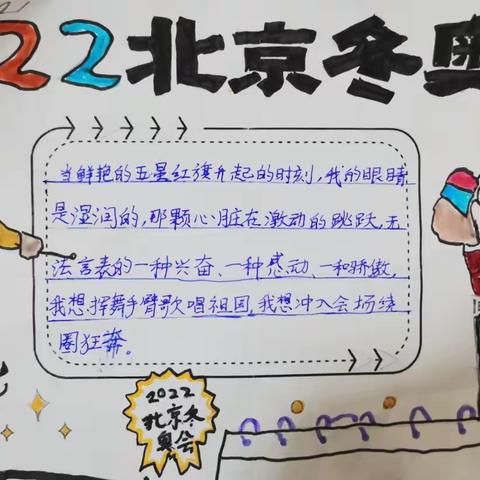 22北京冬奥
当鲜艳的五星红旗升起的时刻,我的眼睛
是湿润的,那颗心脏在激动的跳跃,无
法言表的一种兴奋、一种感动、一种骄傲,
我想挥舞手臂歌唱祖国,我想冲入会场绕
圈狂奔。
2022
北京冬
奥会